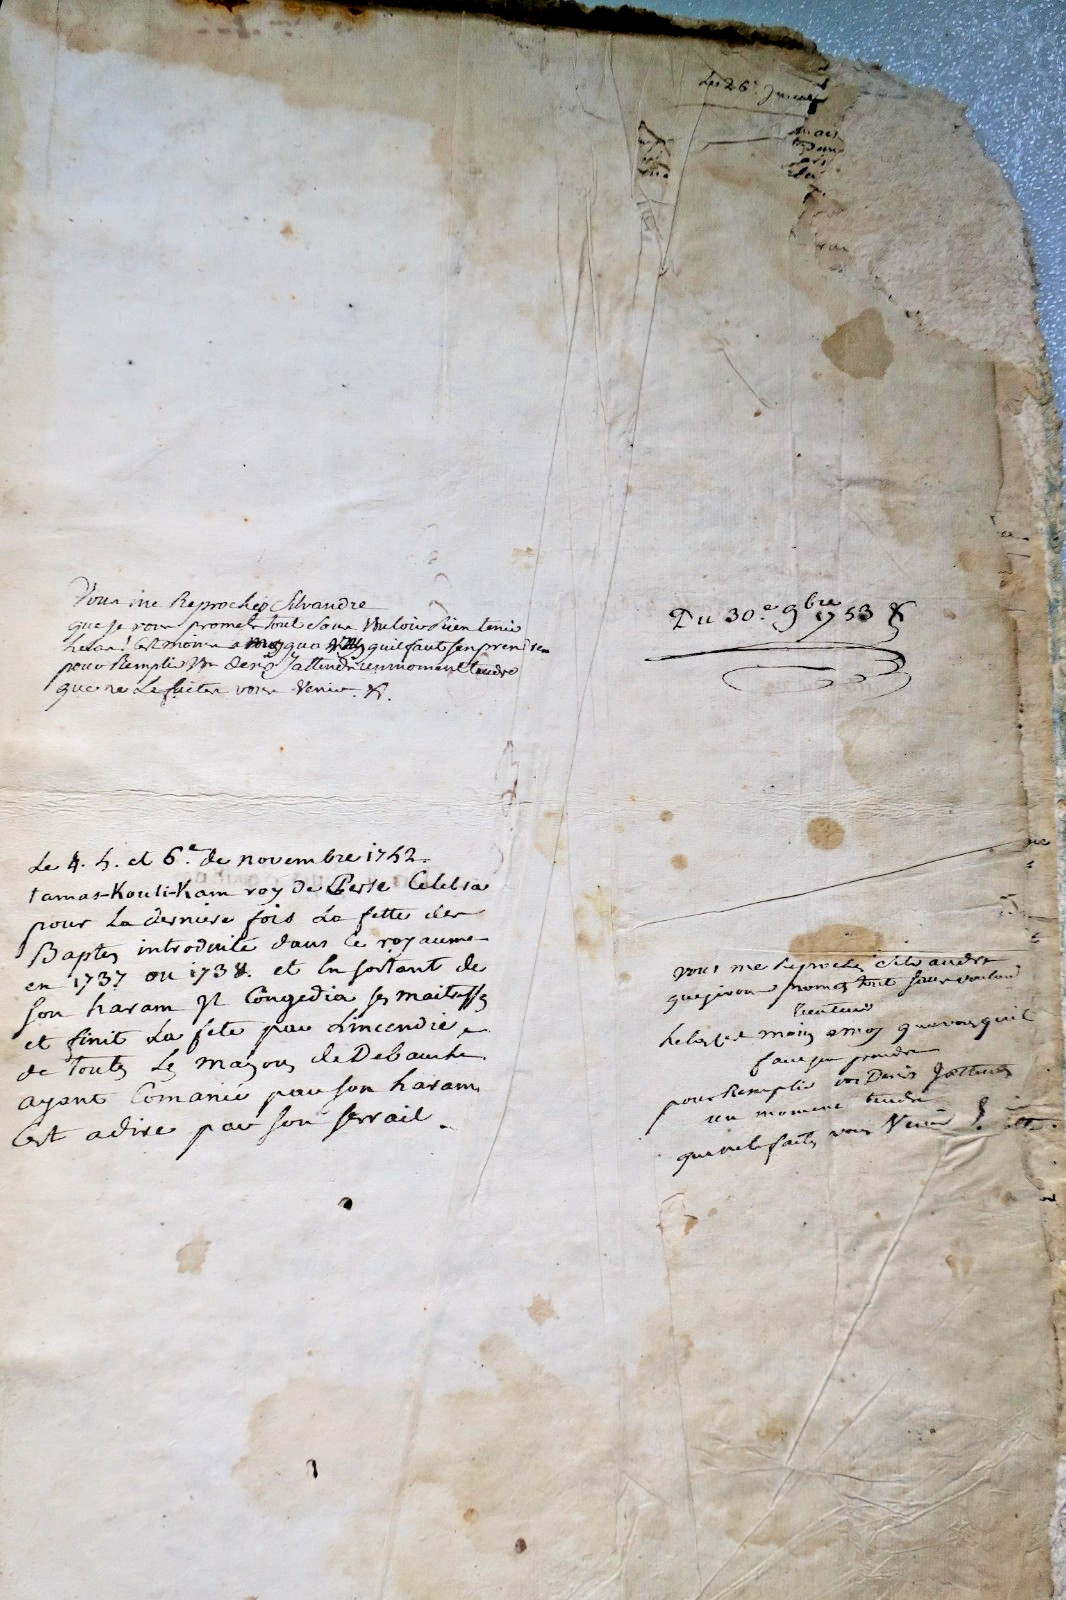 Le 26. Janvier
Vous me Reprochés Silvandre
que je vous promets tout sans vouloir Rien tenir
helas! C'est moins a moy qua vous quil faut sen prendre
pour Remplir Vos desirs J'attends un moment tendre
que ne Le faites vous Venir. &.
Du 30.e 9bre 1753 &
Le 4. 5. et 6.e de novembre 1742.
tamas-Kouli-Kam roy de Perse Celebra
pour La derniere fois La fette des
Baptes introduite dans le royaume
en 1737 ou 1738. et En sortant de
son haram Jl Congedia ses maitresses
et finit La fete par Lincendie
de toutes Les maisons de Debauche
ayant Comancé par son haram
C'est adire par son serrail.
vous me Reprochés Silvandre
que je vous promets tout sans vouloir
Rien tenir
helas c'est moins a moy qua vous quil
faut sen prendre
pour Remplir vos Desirs J'attends
un moment tendre
que ne le faites vous Venir